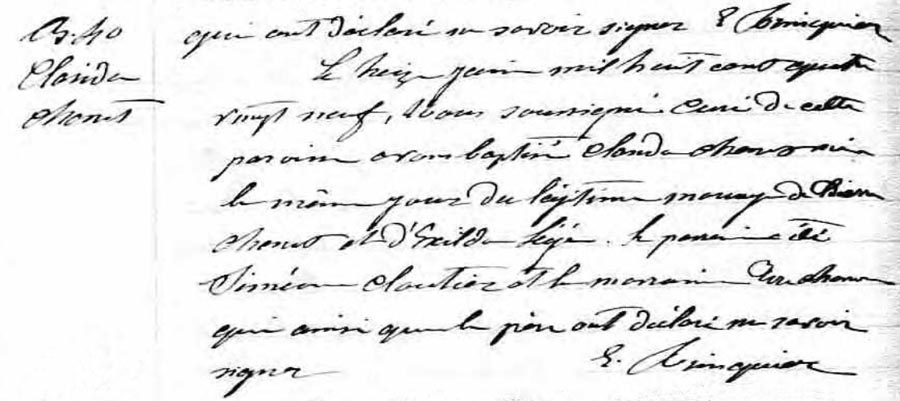 B.40
Claida
Chenet
qui ont déclaré ne savoir signer E
Le juin mil huit cent quatre
vingt neuf, Nous soussigné Curé de cette
paroisse avons baptisé Claida née
le même jour du légitime mariage de Pierre
Chenet et d'Exilda . le parrain a été
Siméon Cloutier et la marraine
qui ainsi que le père ont déclaré ne savoir
signer E.